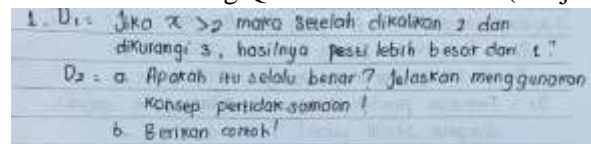 1. D₁ = Jika x >2 maka setelah dikalikan 2 dan
dikurangi 3, hasilnya pasti lebih besar dari 1."
D₂ = a. Apakah itu selalu benar? Jelaskan menggunakan
konsep pertidaksamaan!
b. Berikan contoh!